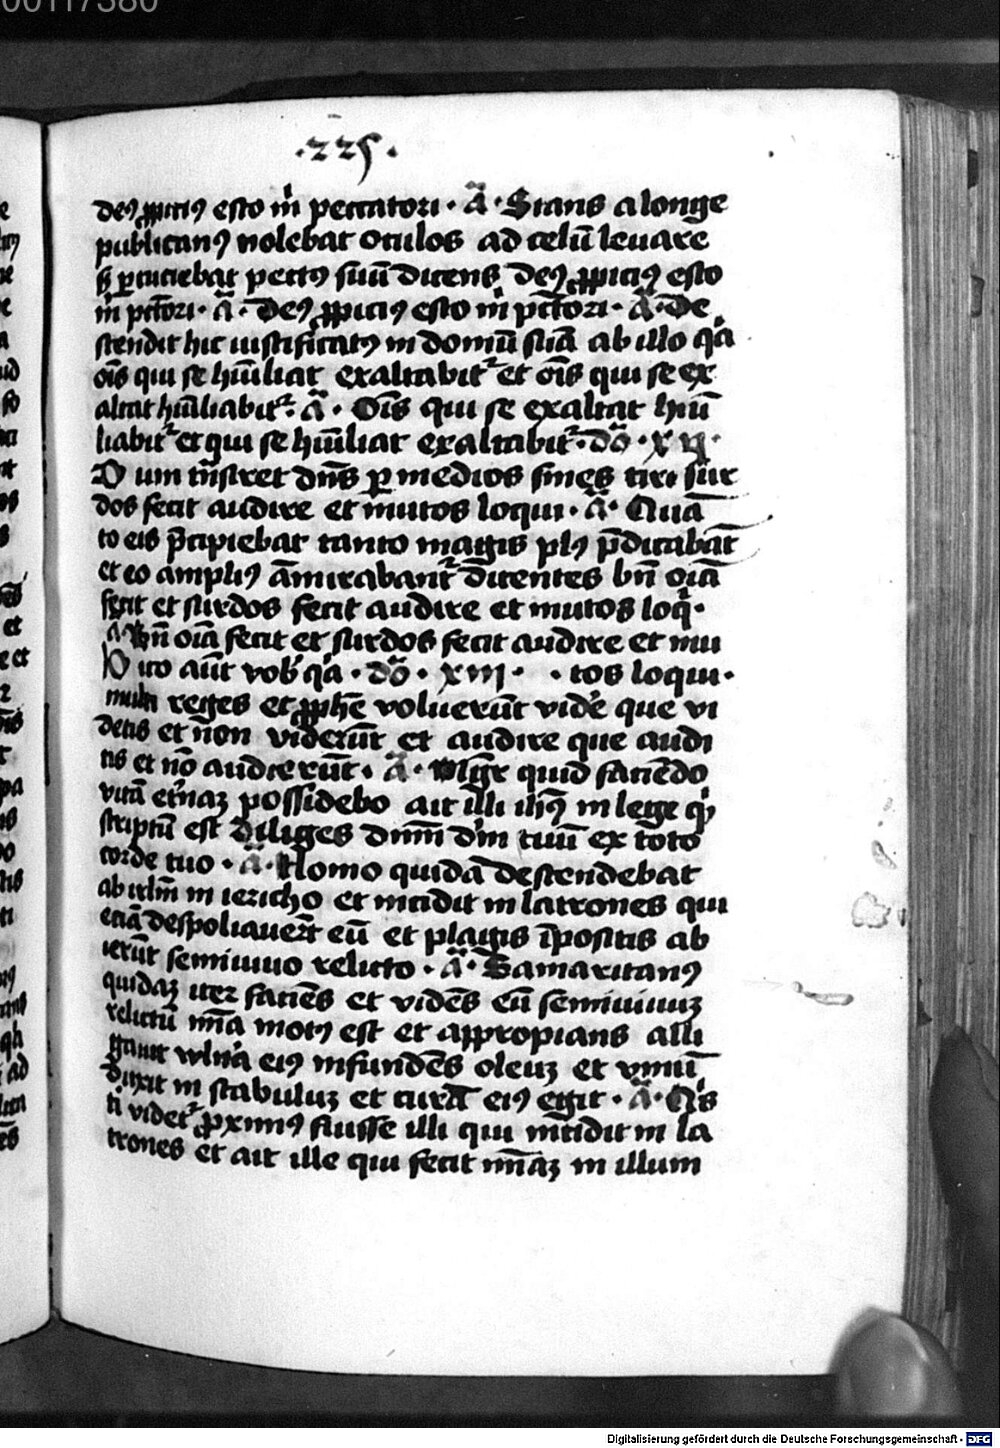 00117380
·225·
deꝰ ꝓpiciꝰ esto m̅ peccatori · A̅ · Stans a longe
publicanꝰ nolebat oculos ad celū leuare
ꝑcuciebat pectꝰ suū dicens deꝰ ꝓpiciꝰ esto
m̅ pct̅ori · A̅ · Deꝰ ꝓpiciꝰ esto m̅ pct̅ori · A̅ · De
scendit hic iustificatꝰ in domū suā ab illo qꝛa
oı̅s qui se hūiliat exaltabit᷑ et oı̅s qui se ex
altat hūiliabit᷑ · A̅ · Oı̅s qui se exaltat hūi
liabit᷑ et qui se hūiliat exaltabit᷑ · do̅ · xij ·
Dum tn̅siret dn̅s ꝑ medios fines tiri sur
dos fecit audire et mutos loqui · A̅ · Quā
to eis p̅cipiebat tanto magis plꝰ p̅dicabāt
et eo ampliꝰ āmirabant᷑ dicentes bn̅ oı̅a
fecit et surdos fecit audire et mutos loq̅ ·
A̅ · Bn̅ oı̅a fecit et surdos fecit audire et mu
Dico aūt vob̅ qꝛa · do̅ · xiij · · tos loqui ·
multi reges et ꝓphē voluerūt vide̅ que vi
detis et non viderūt et audire que audi
tis et nō audierūt · A̅ · Mg̅r quid faciēdo
vitā et̅naꝫ possidebo ait illi ihꝰ in lege qd̅
scriptū est diliges dnm̅ dm̅ tuū ex toto
corde tuo · A̅ · Homo quidā descendebat
ab irlm̅ in iericho et incidit in latrones qui
eciā despoliauer̅t eū et plagis īpositis ab
ierūt semiuiuo relicto · A̅ · Samaritanꝰ
quidaꝫ iter faciēs et vidēs eū semiuiuuꝫ
relictū mı̅a motꝰ est et appropians alli
gauit vuln̅a eiꝰ infundēs oleuꝫ et vinū
duxit in stabuluꝫ et curā eiꝰ egit · A̅ · Qs̅
ti videt᷑ ꝓximꝰ fuisse illi qui incidit in la
trones et ait ille qui fecit mı̅aꝫ in illum
Digitalisierung gefördert durch die Deutsche Forschungsgemeinschaft - DFG